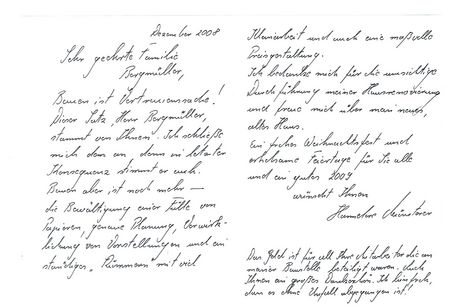 Dezember 2008
Sehr geehrte Familie
Bergmüller,
Bauen ist Vertrauenssache!
Dieser Satz Herr Bergmüller,
stammt von Ihnen. Ich schließe
mich dem an denn in letzter
Konsequenz stimmt er auch.
Bauen aber ist noch mehr –
die Bewältigung einer Fülle von
Papieren, genaue Planung, Verwirk-
lichung von Vorstellungen und ein
ständiges "Kümmern" mit viel
Kleinarbeit und auch eine maßvolle
Preisgestaltung.
Ich bedanke mich für die umsichtige
Durchführung meiner Haussanierung
und freue mich über mein neues,
altes Haus.
Ein frohes Weihnachtsfest und
erholsame Feiertage für Sie alle
und ein gutes 2009
wünscht Ihnen
Hannelore
Das Geld ist für all Ihre Mitarbeiter die an
meiner Baustelle betätigt waren. Auch
Ihnen ein großes Dankeschön. Ich bin froh,
dass es ohne Unfall abgegangen ist!